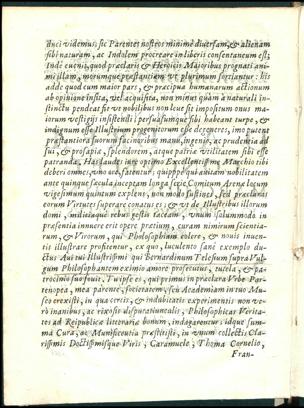 dunci videmus, sic Parentes nostros minimè diversam, & alienam
sibi naturam, ac Indolem procreare in liberis consentaneum est;
Inde evenit, quod præclaris & Heroicis Majoribus prognati ani-
mi illam, morumque præstantiam ut plurimum sortiantur: his
adde quod cum maior pars, & præcipua humanarum actionum
ab opinione insita, vel acquisita, non minus quàm à naturali in-
stinctu pendeat sit ut nonnullis non leve sit impositum onus ma-
iorum vestigijs insistendi; persuasumque sibi habeant turpe, &
indignum esse Illustrium progenitorum esse degeneres, imo putent
præstantiora suorum facinoribus manu, ingenio, ac prudentia ad
sui, & prosapiæ, splendorem, atque patria utilitatem sibi esse
patranda. Has laudes iure optimo Excellentissime Marchio tibi
deberi omnes, uno ore, fatentur; quippe qui avitam nobilitatem
ante quinque sæcula inceptam longa serie Comitum Arenæ locum
vigesimum quintum explens, non modo sustines, sed præclaras
eorum Virtutes superare conatus es; & ut de Illustribus illorum
domi, militiæque rebus gestis taceam, unum solummodo in
præsentia innuere erit operæ pretium, curam nimirum scientia-
rum, & Virorum, qui Philosophiam colere, & novis inven-
tis illustrare profiterentur, ex quo, luculento sane exemplo du-
ctus Avi tui Illustrissimi qui Bernardinum Telesium supra Vul-
gum Philosophantem eximio amore prosecutus, tutela, & pa-
trocinio suo fovit, Tu ipse es, qui primus in præclara Urbe Par-
tenopea, mea parente, societatem, seu Academiam in tuo Mu-
seo erexisti, in qua certis, & indubitatis experimentis non ve-
rò inanibus, ac rixosis disputatiunculis, Philosophicas Verita-
tes ad Reipublicæ litterariæ bonum, indagarentur: idque sum-
ma Cura, ac Munificentia præstitisti, in unum collectis Cla-
rissimis Doctissimisque Viris; Caramuele; Thoma Cornelio,
Fran-